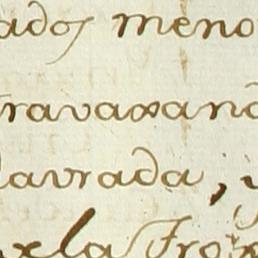 ados meno
travaxan
lavrada, y
xela Fro